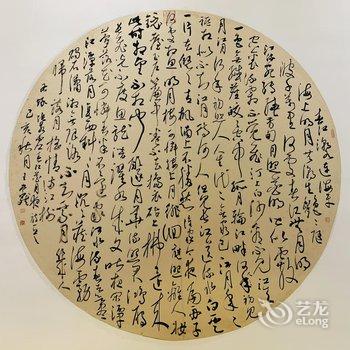 春江潮水連海平
海上明月共潮生灩灩隨
波千里何處春江無月明
江流宛轉繞芳甸月照花林皆似霰
空裏流霜不覺飛汀上白沙看不見江天
一色無纖塵皎皎空中孤月輪江畔何人初見
月江月何年初照人人生代代無窮已江月年年
祗相似不知江月待何人但見長江送流水白雲
一片去悠悠青楓浦上不勝愁誰家今夜扁舟子
何處相思明月樓可憐樓上月徘徊應照離人妝
鏡臺玉戶簾中卷不去搗衣砧上拂還來
此時相望不相聞願逐月華流照君鴻雁
長飛光不度魚龍潛躍水成文昨夜閑潭
夢落花可憐春半不還家江水流春去欲盡
江潭落月復西斜斜月沉沉藏海霧
碣石瀟湘無限路不知乘月幾人
歸落月搖情滿江樹
艺龙
eLong.com